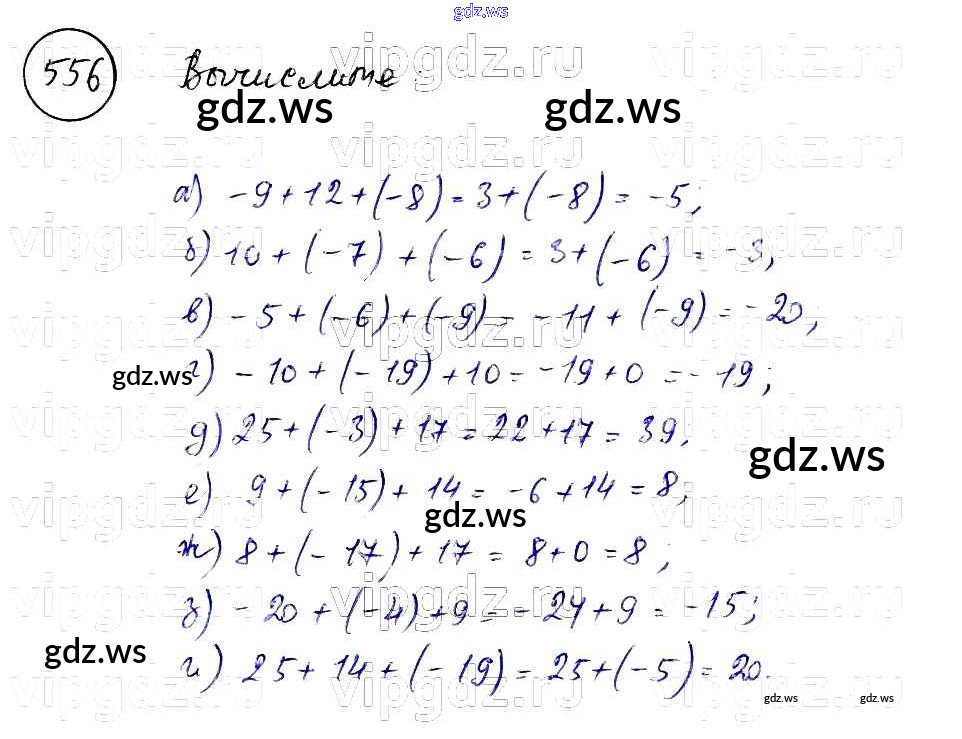 gdz.ws
556 Вычислите:
gdz.ws gdz.ws
а) -9+12+(-8)=3+(-8)=-5;
б) 10+(-7)+(-6)=3+(-6)=-3;
в) -5+(-6)+(-9)=-11+(-9)=-20;
г) -10+(-19)+10=-19+0=-19;
gdz.ws
д) 25+(-3)+17=22+17=39;
gdz.ws
е) 9+(-15)+14=-6+14=8;
gdz.ws
ж) 8+(-17)+17=8+0=8;
з) -20+(-4)+9=-24+9=-15;
gdz.ws
и) 25+14+(-19)=25+(-5)=20.
gdz.ws gdz.ws